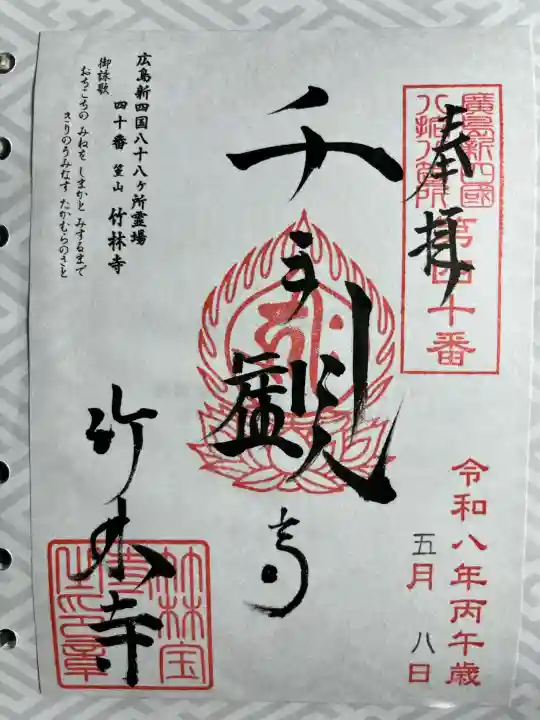 廣島新四國
八拾八箇所
第四十番
奉拝
千手観
音
竹林寺
令和八年丙午歳
五月 八日
広島新四国八十八ヶ所霊場
四十番 篁山 竹林寺
御詠歌
おちこちの みねを しまかと みするまで
きりのうみなす たかむらのさと